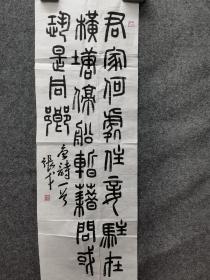 君家何處住妾駐在
橫塘停船暫藉問或
恐是同鄉
唐詩一首